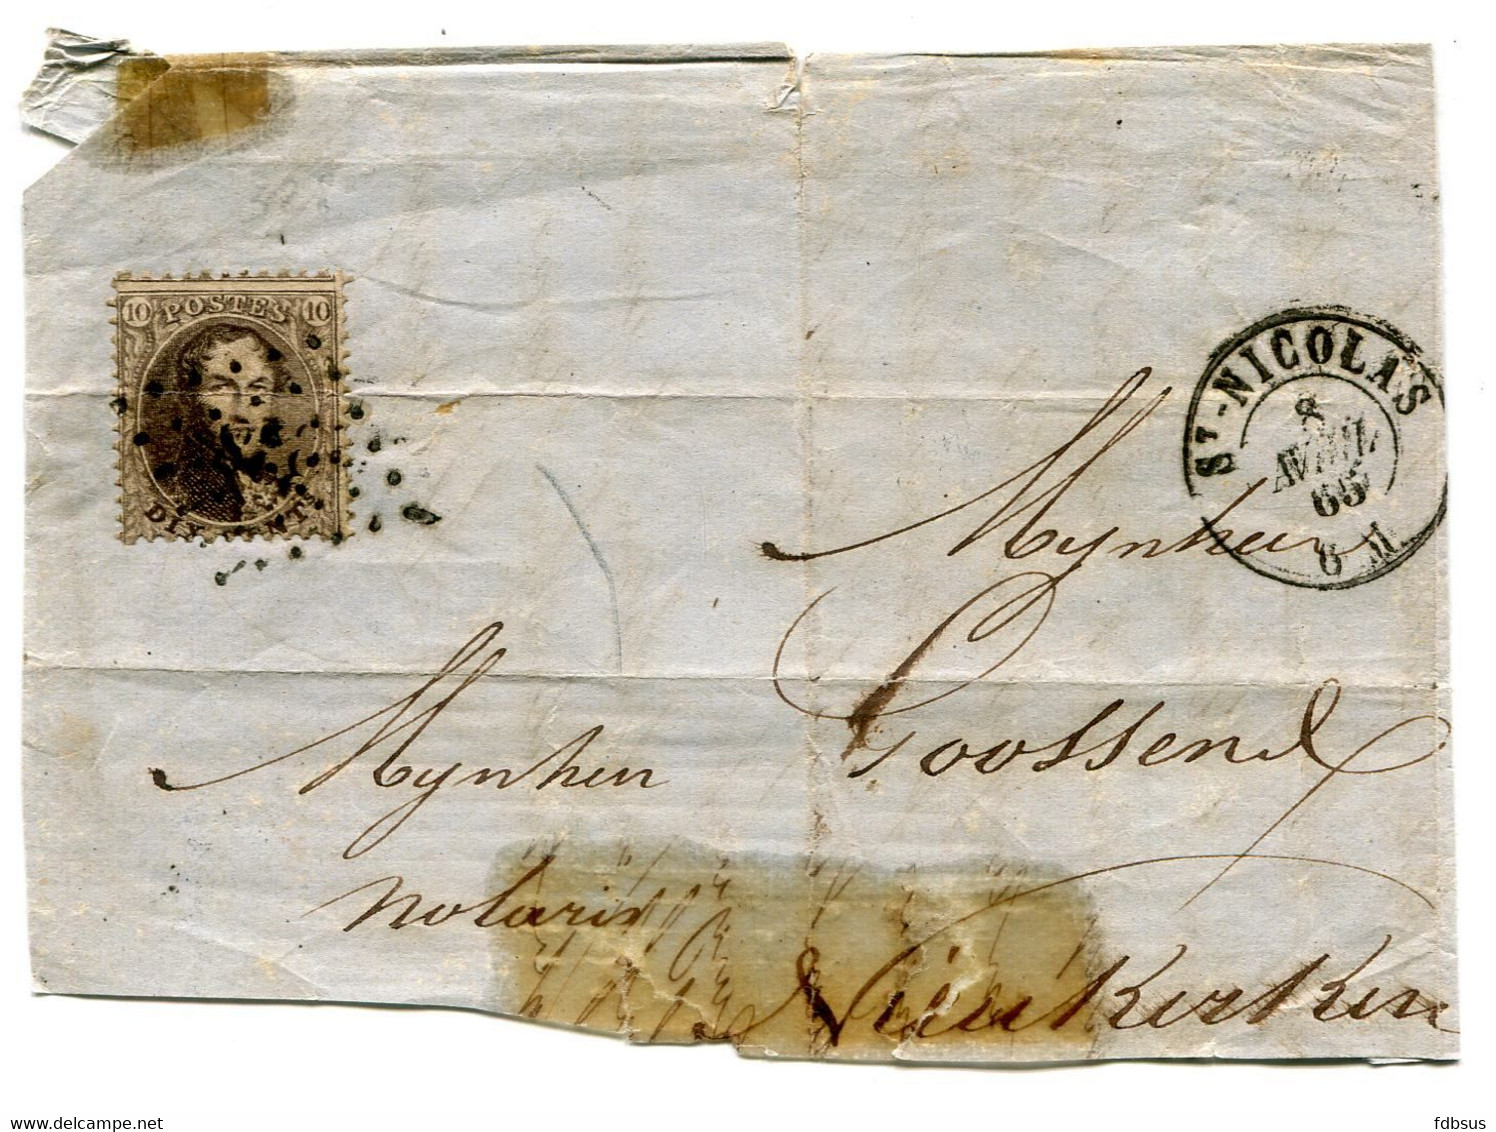 10 POSTES 10
DIX CENT
ST-NICOLAS
8
AVRIL
65
6 M
Mynheer
Goossens
Mynheer
notaris
Nieukerken
fdbsus